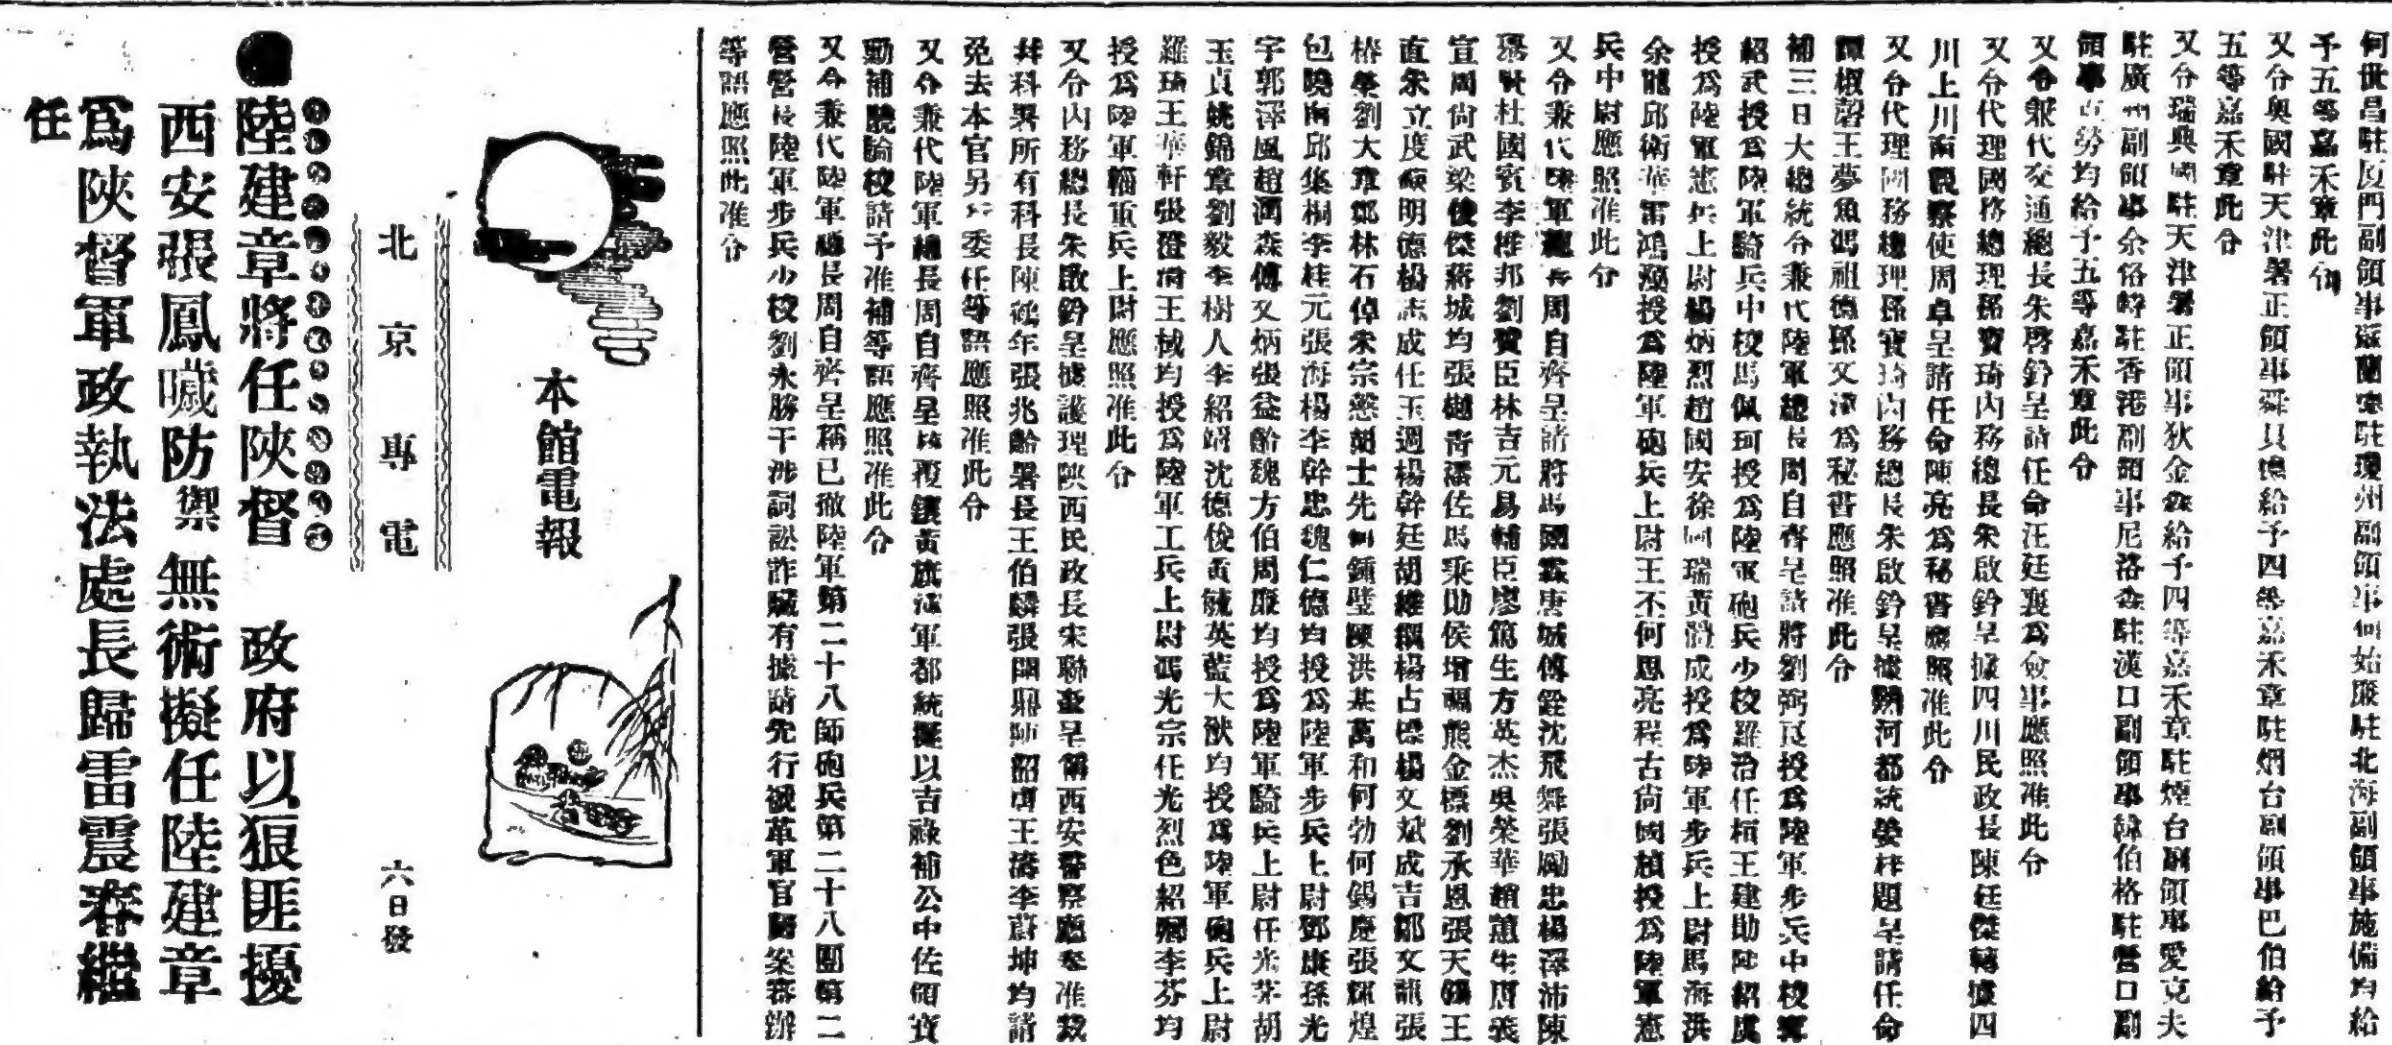 何世昌駐厦門副領事寇蘭駐瓊州副領事何始厰駐北海副領事施備均給
予五等嘉禾章此令
又令奥國駐天津署正領事舜貝德給予四等嘉禾章駐烟台副領事巴伯給予
五等嘉禾章此令
又令瑞典國駐天津署正領事狄金森給予四等嘉禾章駐煙台副領事愛克夫
駐廣州副領事余佫駐香港副領事尼洛森駐漢口副領事韓伯格駐營口副
領事勞均給予五等嘉禾章此令
又令兼代交通總長朱啓鈐呈請任命汪廷襄為僉事應照准此令
又令代理國務總理孫寶琦内務總長朱啟鈐呈據四川民政長陳廷傑轉據四
川上川南觀察使周卓呈請任命陳亮為秘書應照准此令
又令代理國務總理孫寶琦内務總長朱啟鈐呈據熱河都統姜桂題呈請任命
譚椒馨王夢魚馮祖德孫文為秘書應照准此令
補三日大總統令兼代陸軍總長周自齊呈請將劉弼良授爲陸軍步兵中校
紹武授爲陸軍騎兵中校馬佩珂授爲陸軍砲兵少校羅治任桓王建助陸紹虞
授爲陸軍憲兵上尉楊炳烈趙國安徐瑞黄成授爲陸軍步兵上尉馬海洪
余龍邱術華雷鴻授爲陸軍砲兵上尉王不何思亮程古尚國楨授爲陸軍憲
兵中尉應照准此令
又令兼代陸軍總長周自齊呈請將馬國霖唐城傅銓沈飛舞張勵忠楊澤沛陳
賢杜國賓李邦劉贊臣林吉元易輔臣廖篤生方英杰吳榮華趙蕙生周義
宣周尚武梁俊傑蔣城均張樾青潘佐馬秉助侯增福熊金標劉承恩張天錫王
直朱立度明德楊志成任玉週楊幹廷胡繼楊占標楊文斌成吉鄒文龍張
椿榮劉大章鄭林石倬朱宗慤胡士先鍾璧陳洪基萬和何勃何錫慶張輝煌
包曉南邱集桐李桂元張海楊李幹忠魏仁德均授爲陸軍步兵上尉鄧康孫光
宇郭澤風趙潤森傅文炳張益齡魏方伯周厰均授爲陸軍騎兵上尉任光胡
玉貞姚錦章劉毅李樹人李紹沈德俊黄毓英藍大猷均授爲陸軍砲兵上尉
羅琦王華軒張澄王械均授爲陸軍工兵上尉馮光宗任光烈色紹李芬均
授爲陸軍輜重兵上尉應照准此令
又令内務總長朱啟鈐呈據護理陝西民政長宋聯奎呈稱西安警察廳奉准裁
幷科署所有科長陳年張兆齡署長王伯麟張開師韶王濤李蔚坤均請
免去本官另委任等語應照准此令
又令兼代陸軍總長周自齊呈核覆鑲黄旗軍都統擬以吉祿補公中佐領寳
勳補驍論校請予准補等語應照准此令
又令兼代陸軍總長周自齊呈稱已撤陸軍第二十八師砲兵第二十八團第二
營營長陸軍步兵少校劉永勝干涉詞訟詐贓有據請先行褫革軍官歸案審辦
等語應照此准令
本館電報
北京專電
六日發
陸建章將任陝督 政府以狼匪擾
西安張鳳嶬防禦無術擬任陸建章
爲陝督軍政執法處長歸雷震春繼
任